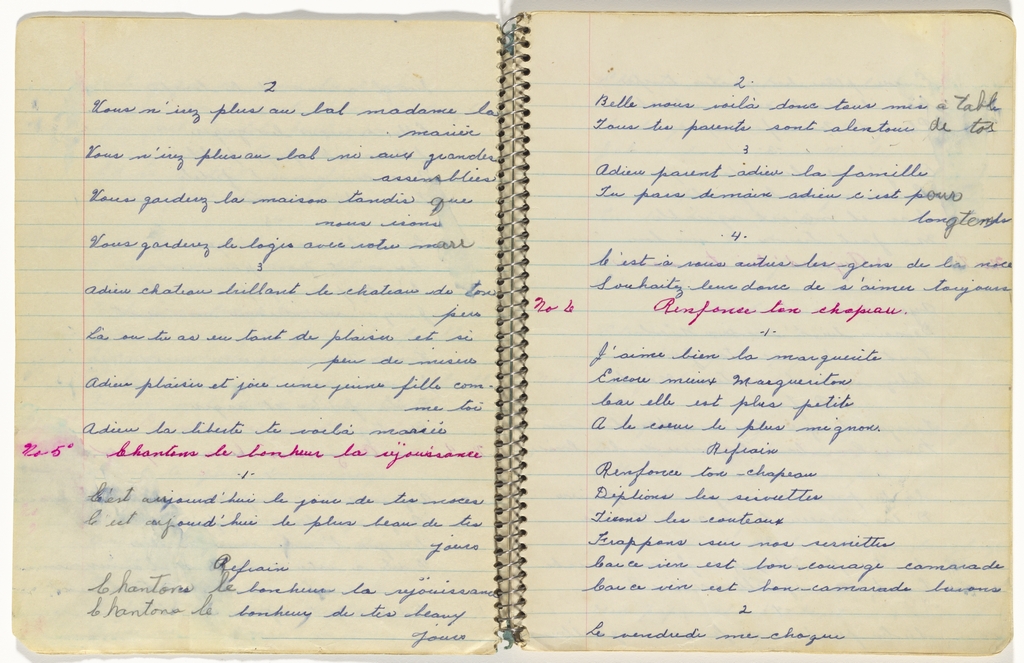 2
Vous n'irez plus au bal madame la
mariée
Vous n'irez plus au bal ni aux grandes
assemblées
Vous garderez la maison tandis que
nous irons
Vous garderez le logis avec votre mari
3
Adieu chateau brillant le chateau de ton
père
Là ou tu as eu tant de plaisir et si
peu de misère
Adieu plaisir et joie une jeune fille com-
me toi
Adieu la liberté te voilà mariée
No 5° Chantons le bonheur la réjouissance
-1-
C'est aujourd'hui le jour de tes noces
C'est aujourd'hui le plus beau de tes
jours
Refrain
Chantons le bonheur la réjouissance
Chantons le bonheur de tes beaux
jours
2.
Belle nous voilà donc tous mis à table
Tous tes parents sont alentour de toi
3
Adieu parent adieu la famille
Tu pars demain adieu c'est pour
longtemps
.4.
C'est à vous autres les gens de la noce
Souhaitez-leur donc de s'aimer toujours
No 6 Renfonce ton chapeau.
-1-
J'aime bien la marguerite
Encore mieux Margueriton
Car elle est plus petite
A le coeur le plus mignon.
Refrain
Renfonce ton chapeau
Déplions les serviettes
Tirons les couteaux
Frappons sur nos serviettes
Car ce vin est bon courage camarade
Car ce vin est bon camarade buvons
2
Le vendredi me choque